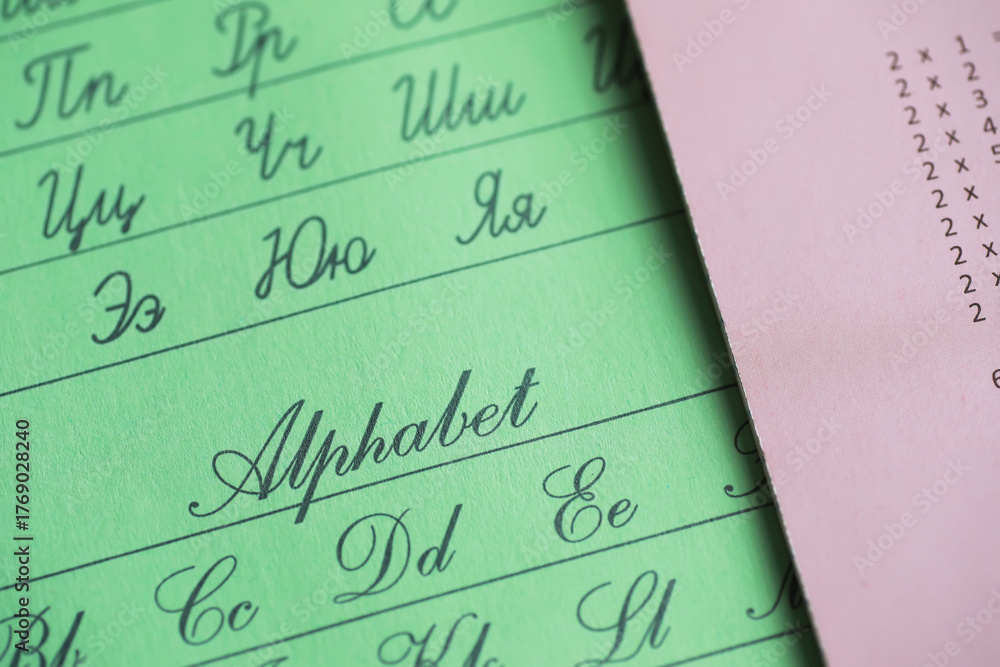 Пп Рр Сс
Цц Чч Шш
Ээ Юю Яя
Alphabet
Cc Dd Ee
Bb Kk Ll
2 x 1 =
2 x 2
2 x 3
2 x 4
2 x 5
2 x
2 x
2 x
2 x
2
6